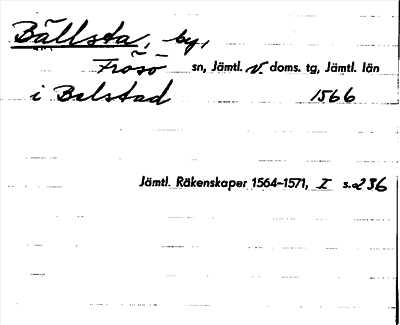 Bällsta, by,
Frösö sn, Jämtl. v. doms. tg, Jämtl. län
i Balstad 1566
Jämtl. Räkenskaper 1564-1571, I s. 236